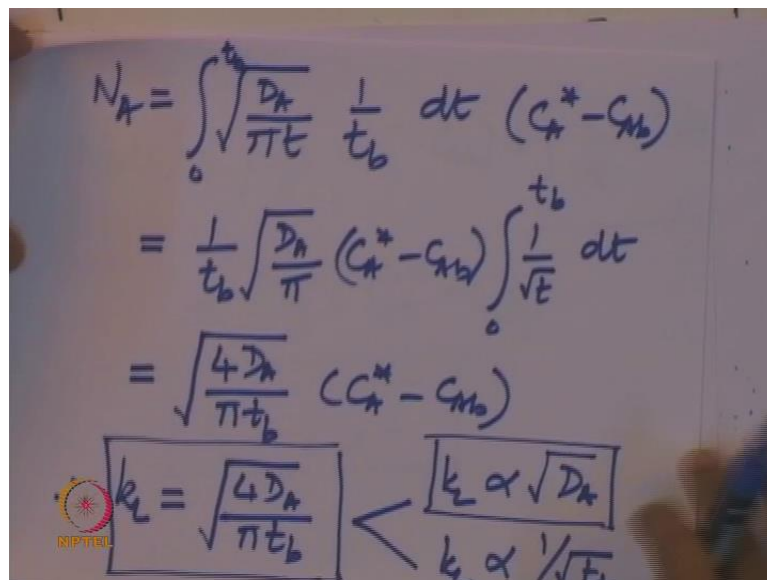 N_A = ∫_0^{t_b} √(D_A/πt) 1/t_b dt (C_A^* - C_{Ab})
= 1/t_b √(D_A/π) (C_A^* - C_{Ab}) ∫_0^{t_b} 1/√t dt
= √(4D_A/πt_b) (C_A^* - C_{Ab})
k_L = √(4D_A/πt_b) < k_L ∝ √D_A
k_L ∝ 1/√t_b
NPTEL